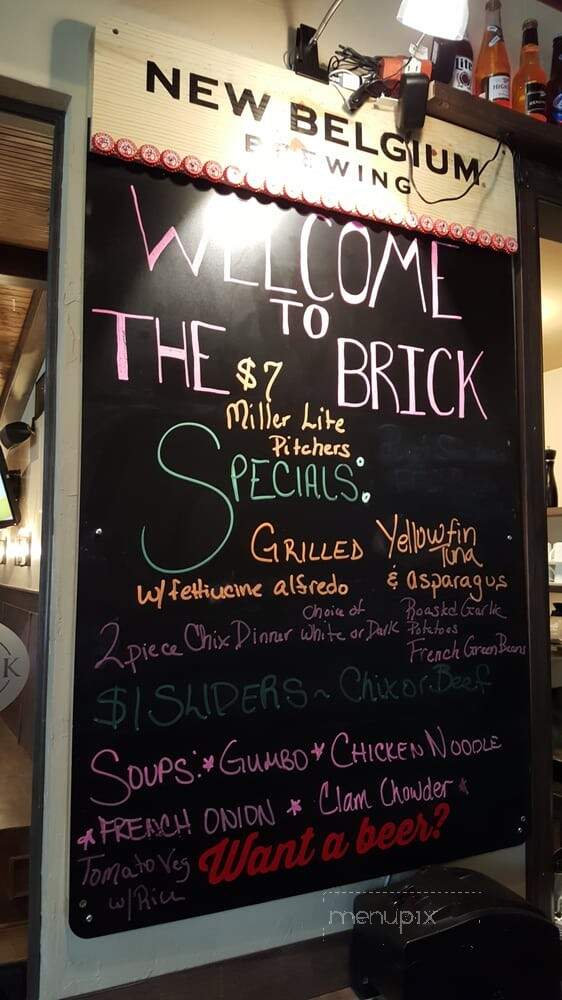 NEW BELGIUM
BREWING
WELCOME
TO
THE BRICK
$7
Miller Lite
Pitchers
SPECIALS:
GRILLED Yellowfin
Tuna
w/fettiucine alfredo & asparagus
2 piece Chix Dinner choice of
White or Dark
Roasted Garlic
Potatoes
French Green Beans
$1 SLIDERS ~ Chix or Beef
SOUPS: * GUMBO * CHICKEN NOODLE
* FRENCH ONION * Clam Chowder *
Tomato Veg
w/Rice
Want a beer?
K
menupix